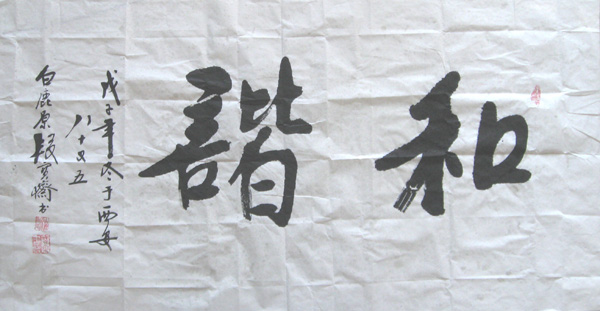 和諧
戊子年冬于西安
八十又五
白鹿原段宝齋书